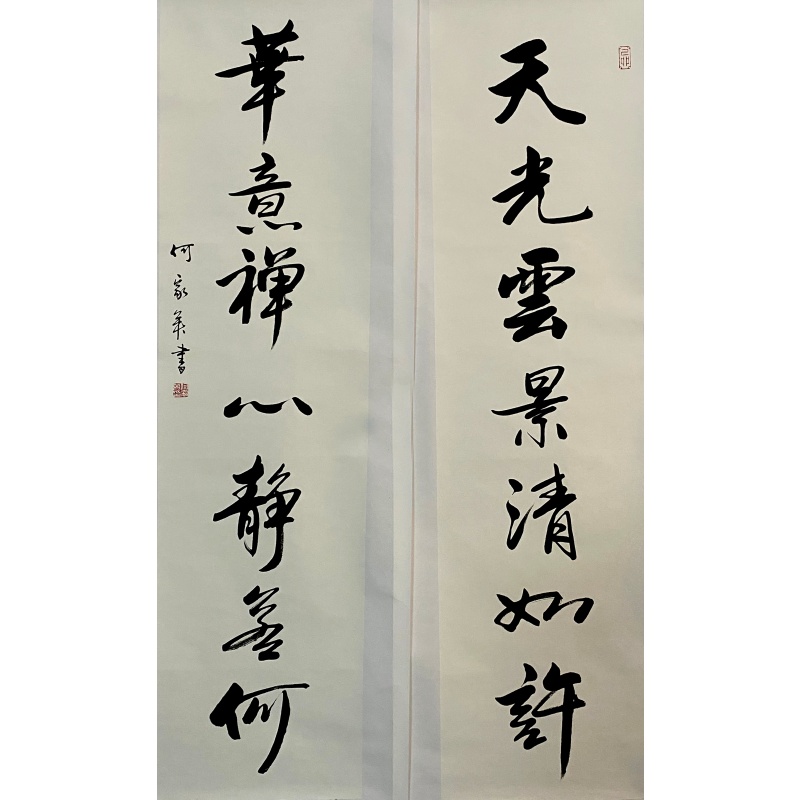 天光雲景清如許
華意禅心静若何
何家英書